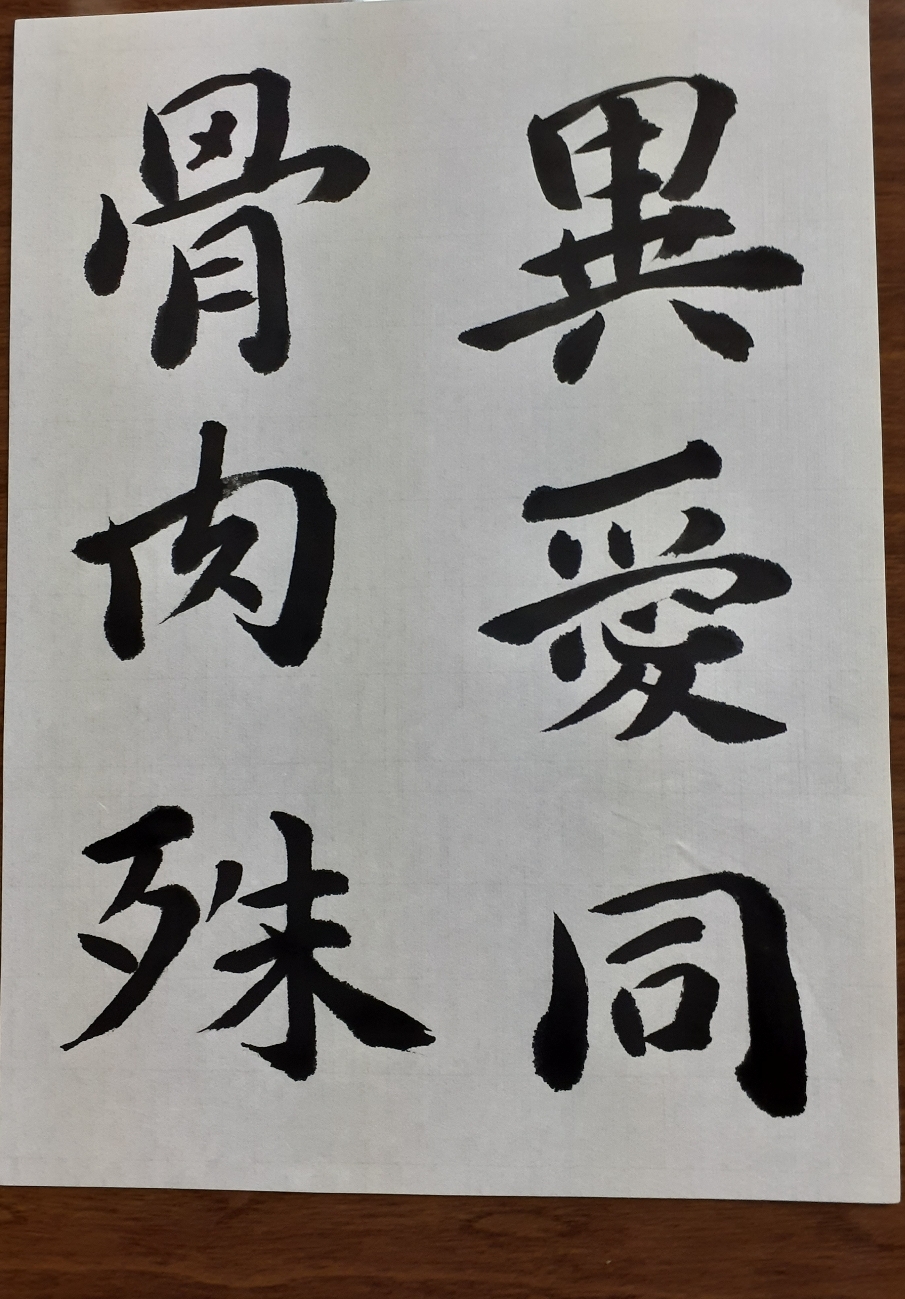 異愛同
骨肉殊